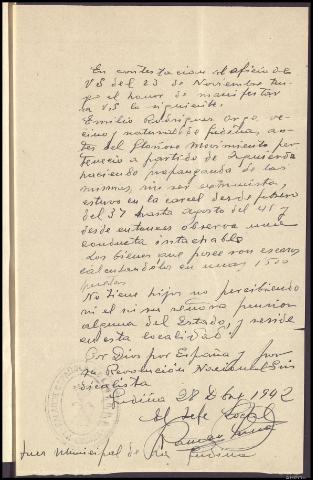 En contestacion al oficio de la
V.S del 23 de Noviembre ten-
go el honor de manifestar
a V.S lo siguiente.
Emilio Rodriguez ve-
cino y natural de Gudiña, an-
tes del Glorioso Movimiento per-
tenecio a partido de Izquierda
haciendo propaganda de las
mismas, sin ser extremista,
estuvo en la carcel desde febrero
del 37 hasta agosto del 41 y
desde entonces observa una
conducta intachable
Los bienes que posee son escasos
calculandolos en unas 1500
pesetas
No tiene hijos no percibiendo
ni el ni su señora pension
alguna del Estado, y reside
en esta localidad.
Por Dios por España y por
su Revolución Nacional Sin
dicalista
Gudiña 28 Dbre 1942
El Jefe Local
Juez Municipal de La Gudiña